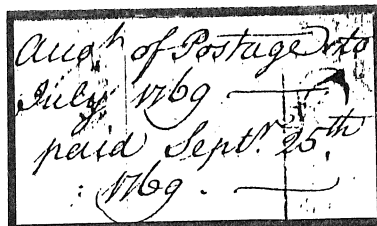 of Postage to
July 1769
paid Septr. 25th
1769.